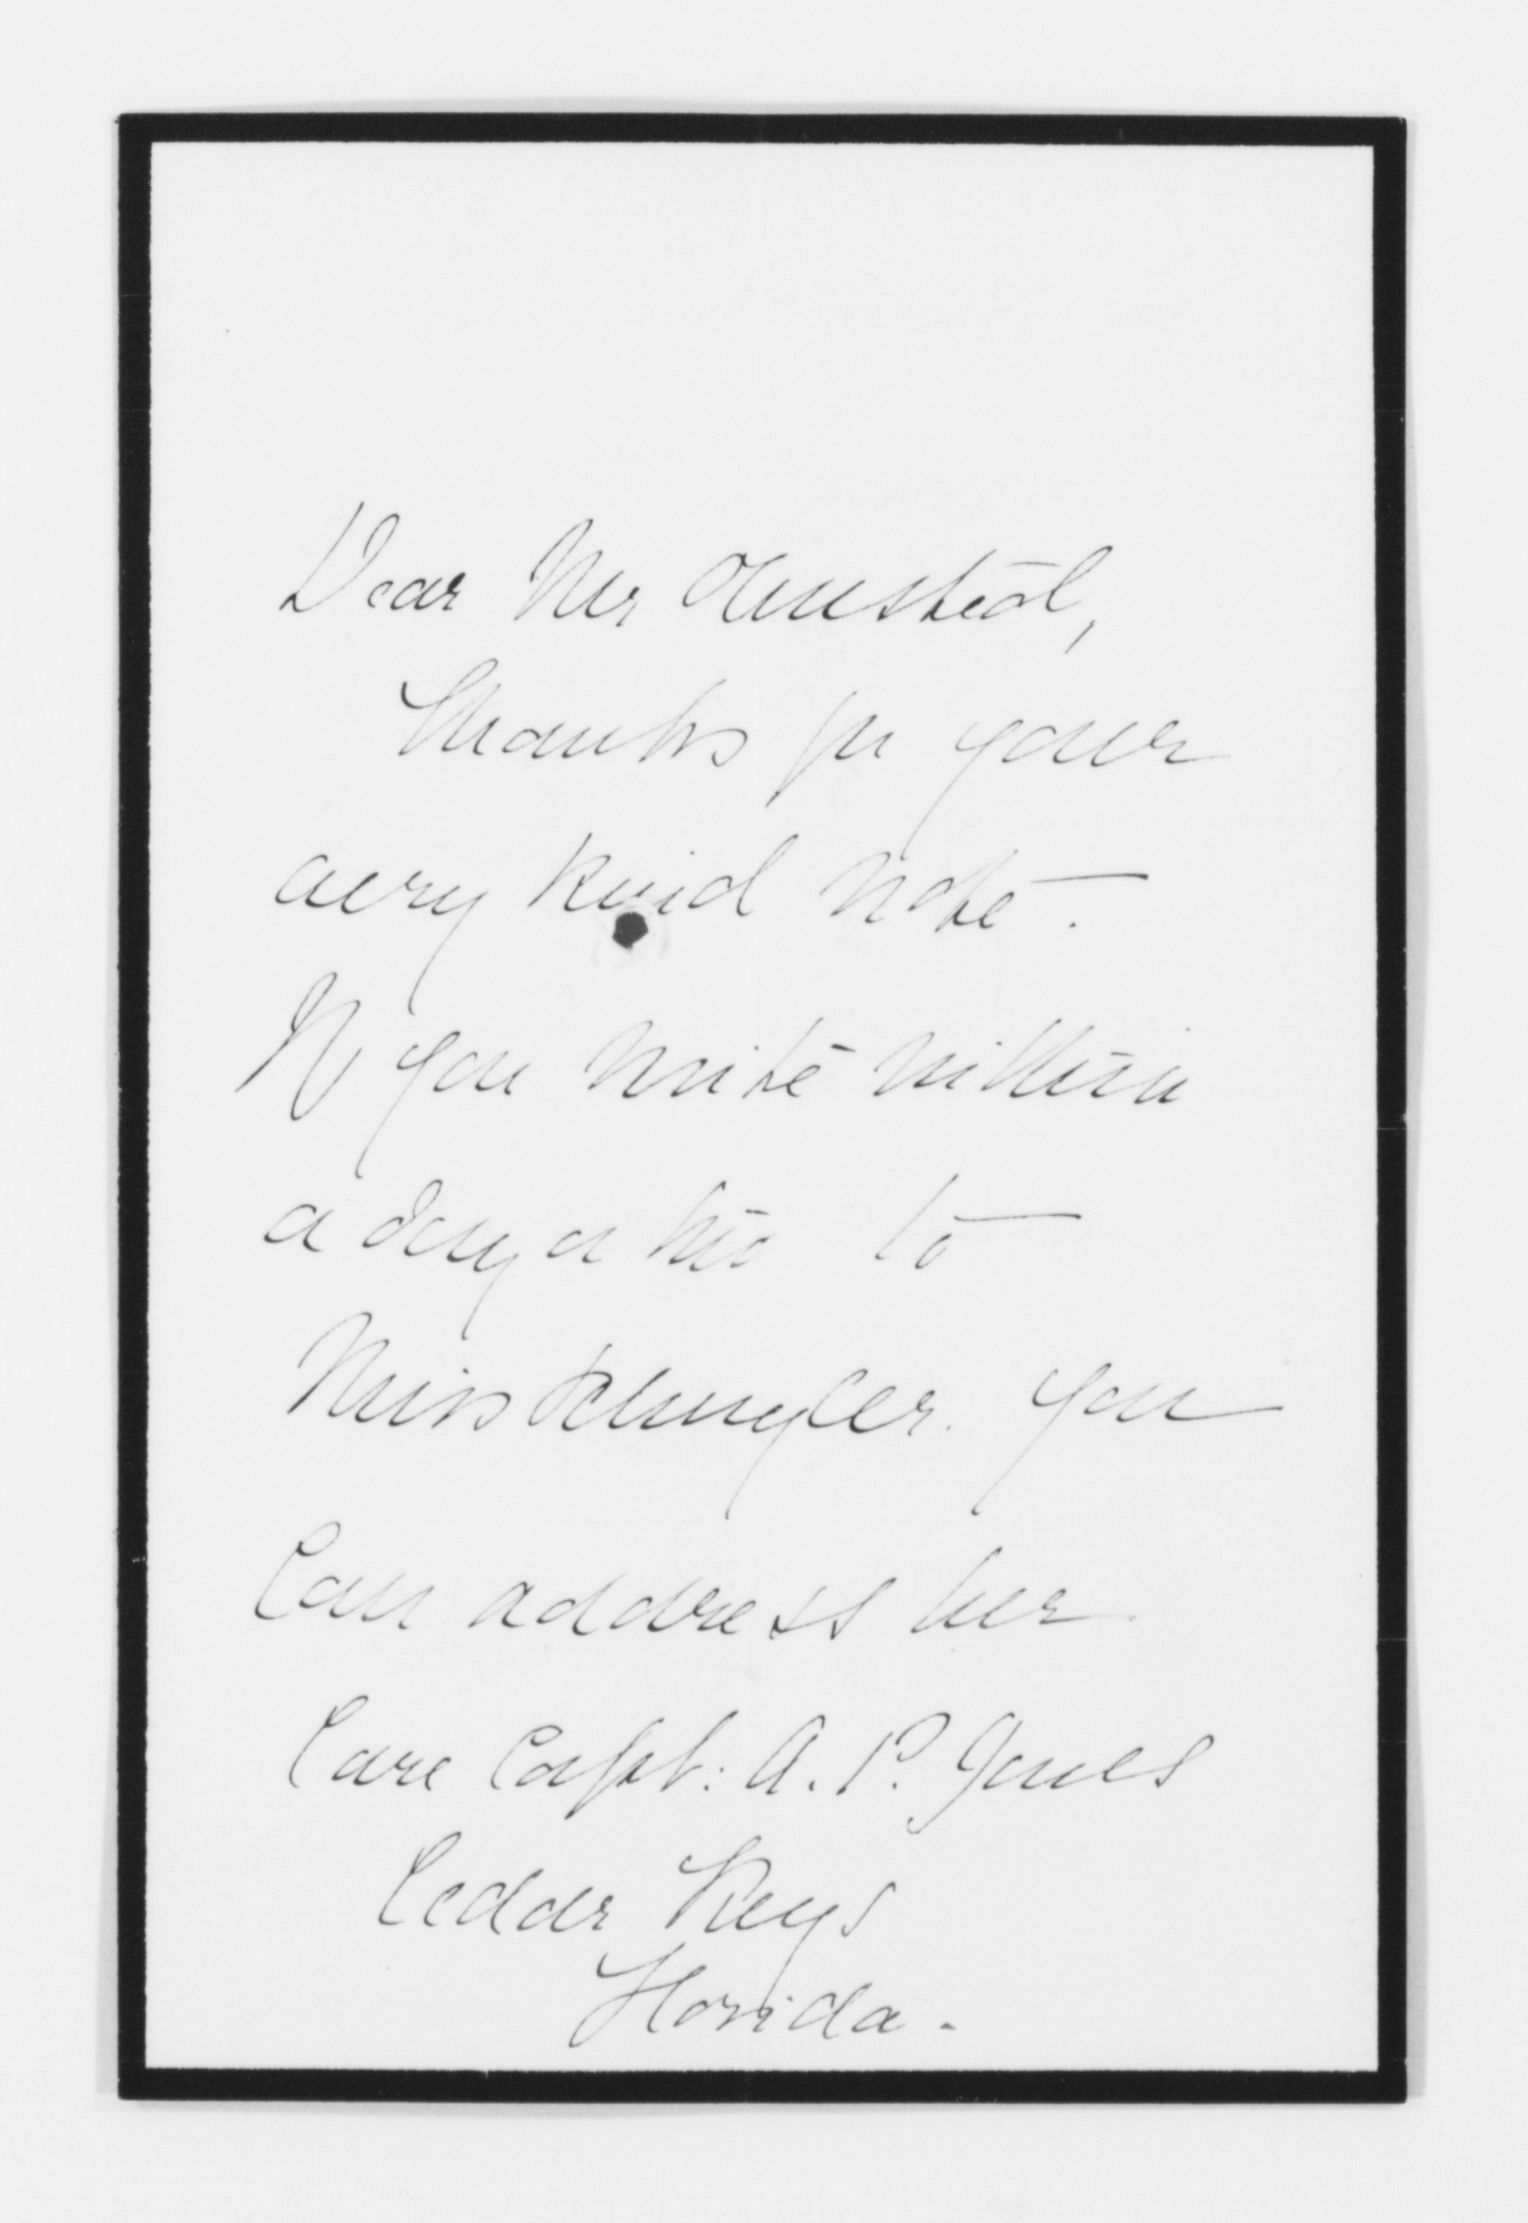 Dear Mr Olmsted,
Thanks for your
very kind note.
If you write within
a day or two to
Miss Schuyler. you
Can address her
Care Capt: A. P. Jones
Cedar Keys
Florida.